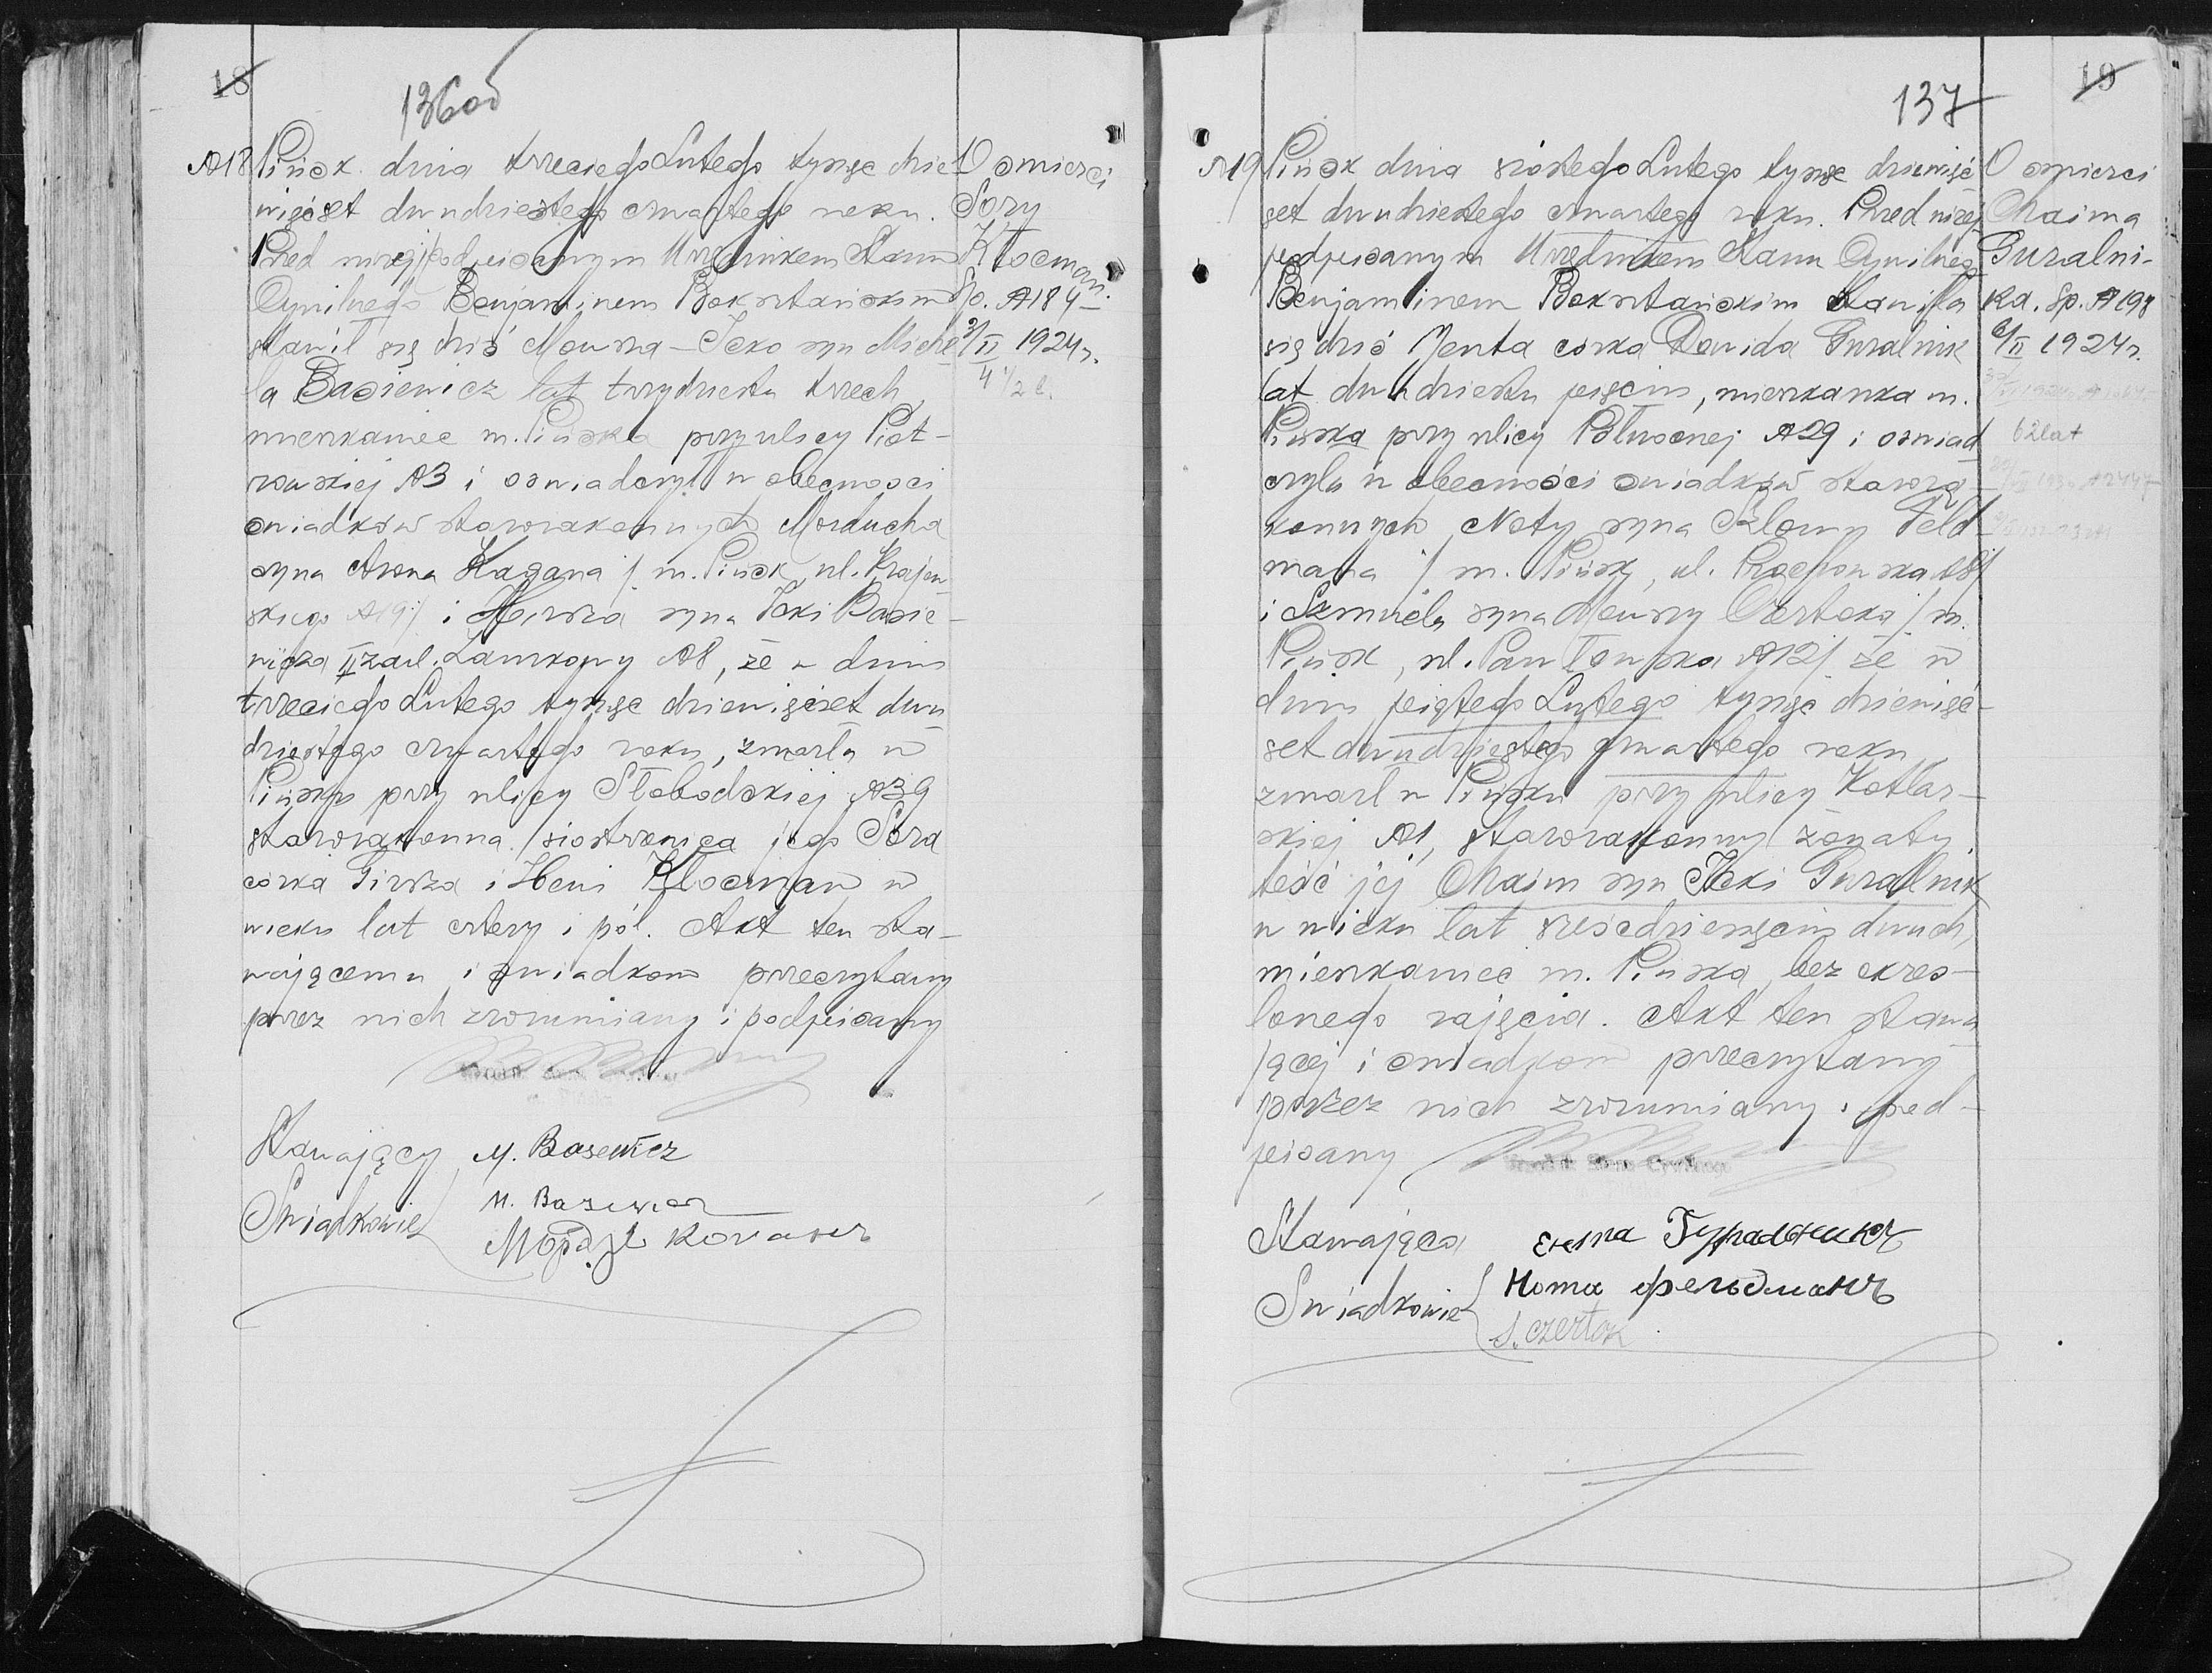 18
136 об
№18 Pińsk dnia trzeciego Lutego tysiąc dzie-
więćset dwudziestego czwartego roku.
Przed niżej podpisanym Urzędnikem Stanu
Cywilnego Benjaminem Boksztańskim
stawił się dziś Mowsza-Icko syn Miche
la Basiewicz lat trzydziestu trzech,
mieszkaniec m. Pińska przy ulicy Piot-
rowskiej №3 i oświadczył w obecności
świadków starozakonnych Morducha
syna Arona Kagana / m. Pińsk, ul. Krajew
skiego №19/ i Hersza syna Icki Basie-
wicza II zauł. Zamkowy №8, że w dniu
trzeciego Lutego tysiąc dziewięćset dwu
dziestego czwartego roku, zmarła w
Pińsku przy ulicy Słobodskiej №39
starozakonna /siostrzenica jego Sora
córka Girsza i Heni Kłocman w
wieku lat cztery i pół. Akt ten sta-
wającemu i świadkom przeczytany
przez nich zrozumiany i podpisany
Stawający M. Basewicz
Świadkowie M. Basewicz
Мордух Коган
O śmierci
Sory
Kłocman.
Sp. №184
3/II 1924 r.
4 1/2 l.
19
137
№19 Pińsk dnia szóstego Lutego tysiąc dziewięć
set dwudziestego czwartego roku. Przed niżej
podpisanym Urzędnikem Stanu Cywilneg
Benjaminem Boksztańskim stawiła
się dziś Jenta córka Dawida Guralnik
lat dwudziestu pięciu, mieszkanka m.
Pińska przy ulicy Północnej №29 i oświad
czyła w obecności świadków staroza-
konnych Noty syna Szlomy Feld-
mana / m. Pińsk, ul.
i Szmuela syna Mowszy Czertoka / m.
Pińsk, ul. Pawłowska №12/ że w
dniu piątego Lutego tysiąc dziewięć-
set dwudziestego czwartego roku
zmarł w Pińsku przy ulicy Kotlar-
skiej №1, starozakonny żonaty,
teść jej Chaim syn Icki Guralnik
w wieku lat sześćdziesięciu dwuch,
mieszkaniec m. Pińska, bez okreś-
lonego zajęcia. Akt ten stawa
jącej i świadkom przeczytany
przez nich zrozumiany i pod-
pisany
Urzędnik Stanu Cywilnego
Stawająca Ента Гуральникъ
Świadkowie Нота Фельдманъ
S. Czertok
O śmierci
Chaima
Guralni-
ka. Sp. №198
6/II 1924 r.
62 lat